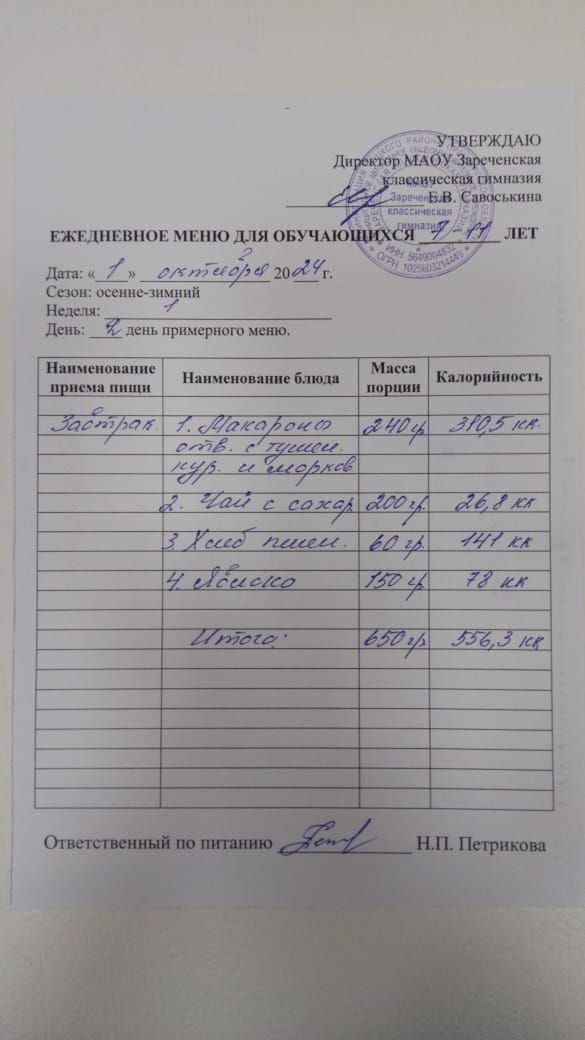 УТВЕРЖДАЮ
Директор МАОУ Зареченская
классическая гимназия
Е.В. Савоськина
МАОУ
Зареченская
классическая
гимназия
ИНН 5649004832
ОГРН 1025603214449
ЕЖЕДНЕВНОЕ МЕНЮ ДЛЯ ОБУЧАЮЩИХСЯ 7-11 ЛЕТ
Дата: «1» октября 2024 г.
Сезон: осенне-зимний
Неделя: 1
День: 2 день примерного меню.
Наименование приема пищи Наименование блюда Масса порции Калорийность
Завтрак. 1. Макароны 240 гр 310,5 кк.
отв. с тушен.
кур. и морков.
2. Чай с сахар 200 гр. 26,8 кк
3. Хлеб пшен. 60 гр. 141 кк
4. Яблоко 150 гр 78 кк
Итого: 650 гр 556,3 кк
Ответственный по питанию Н.П. Петрикова